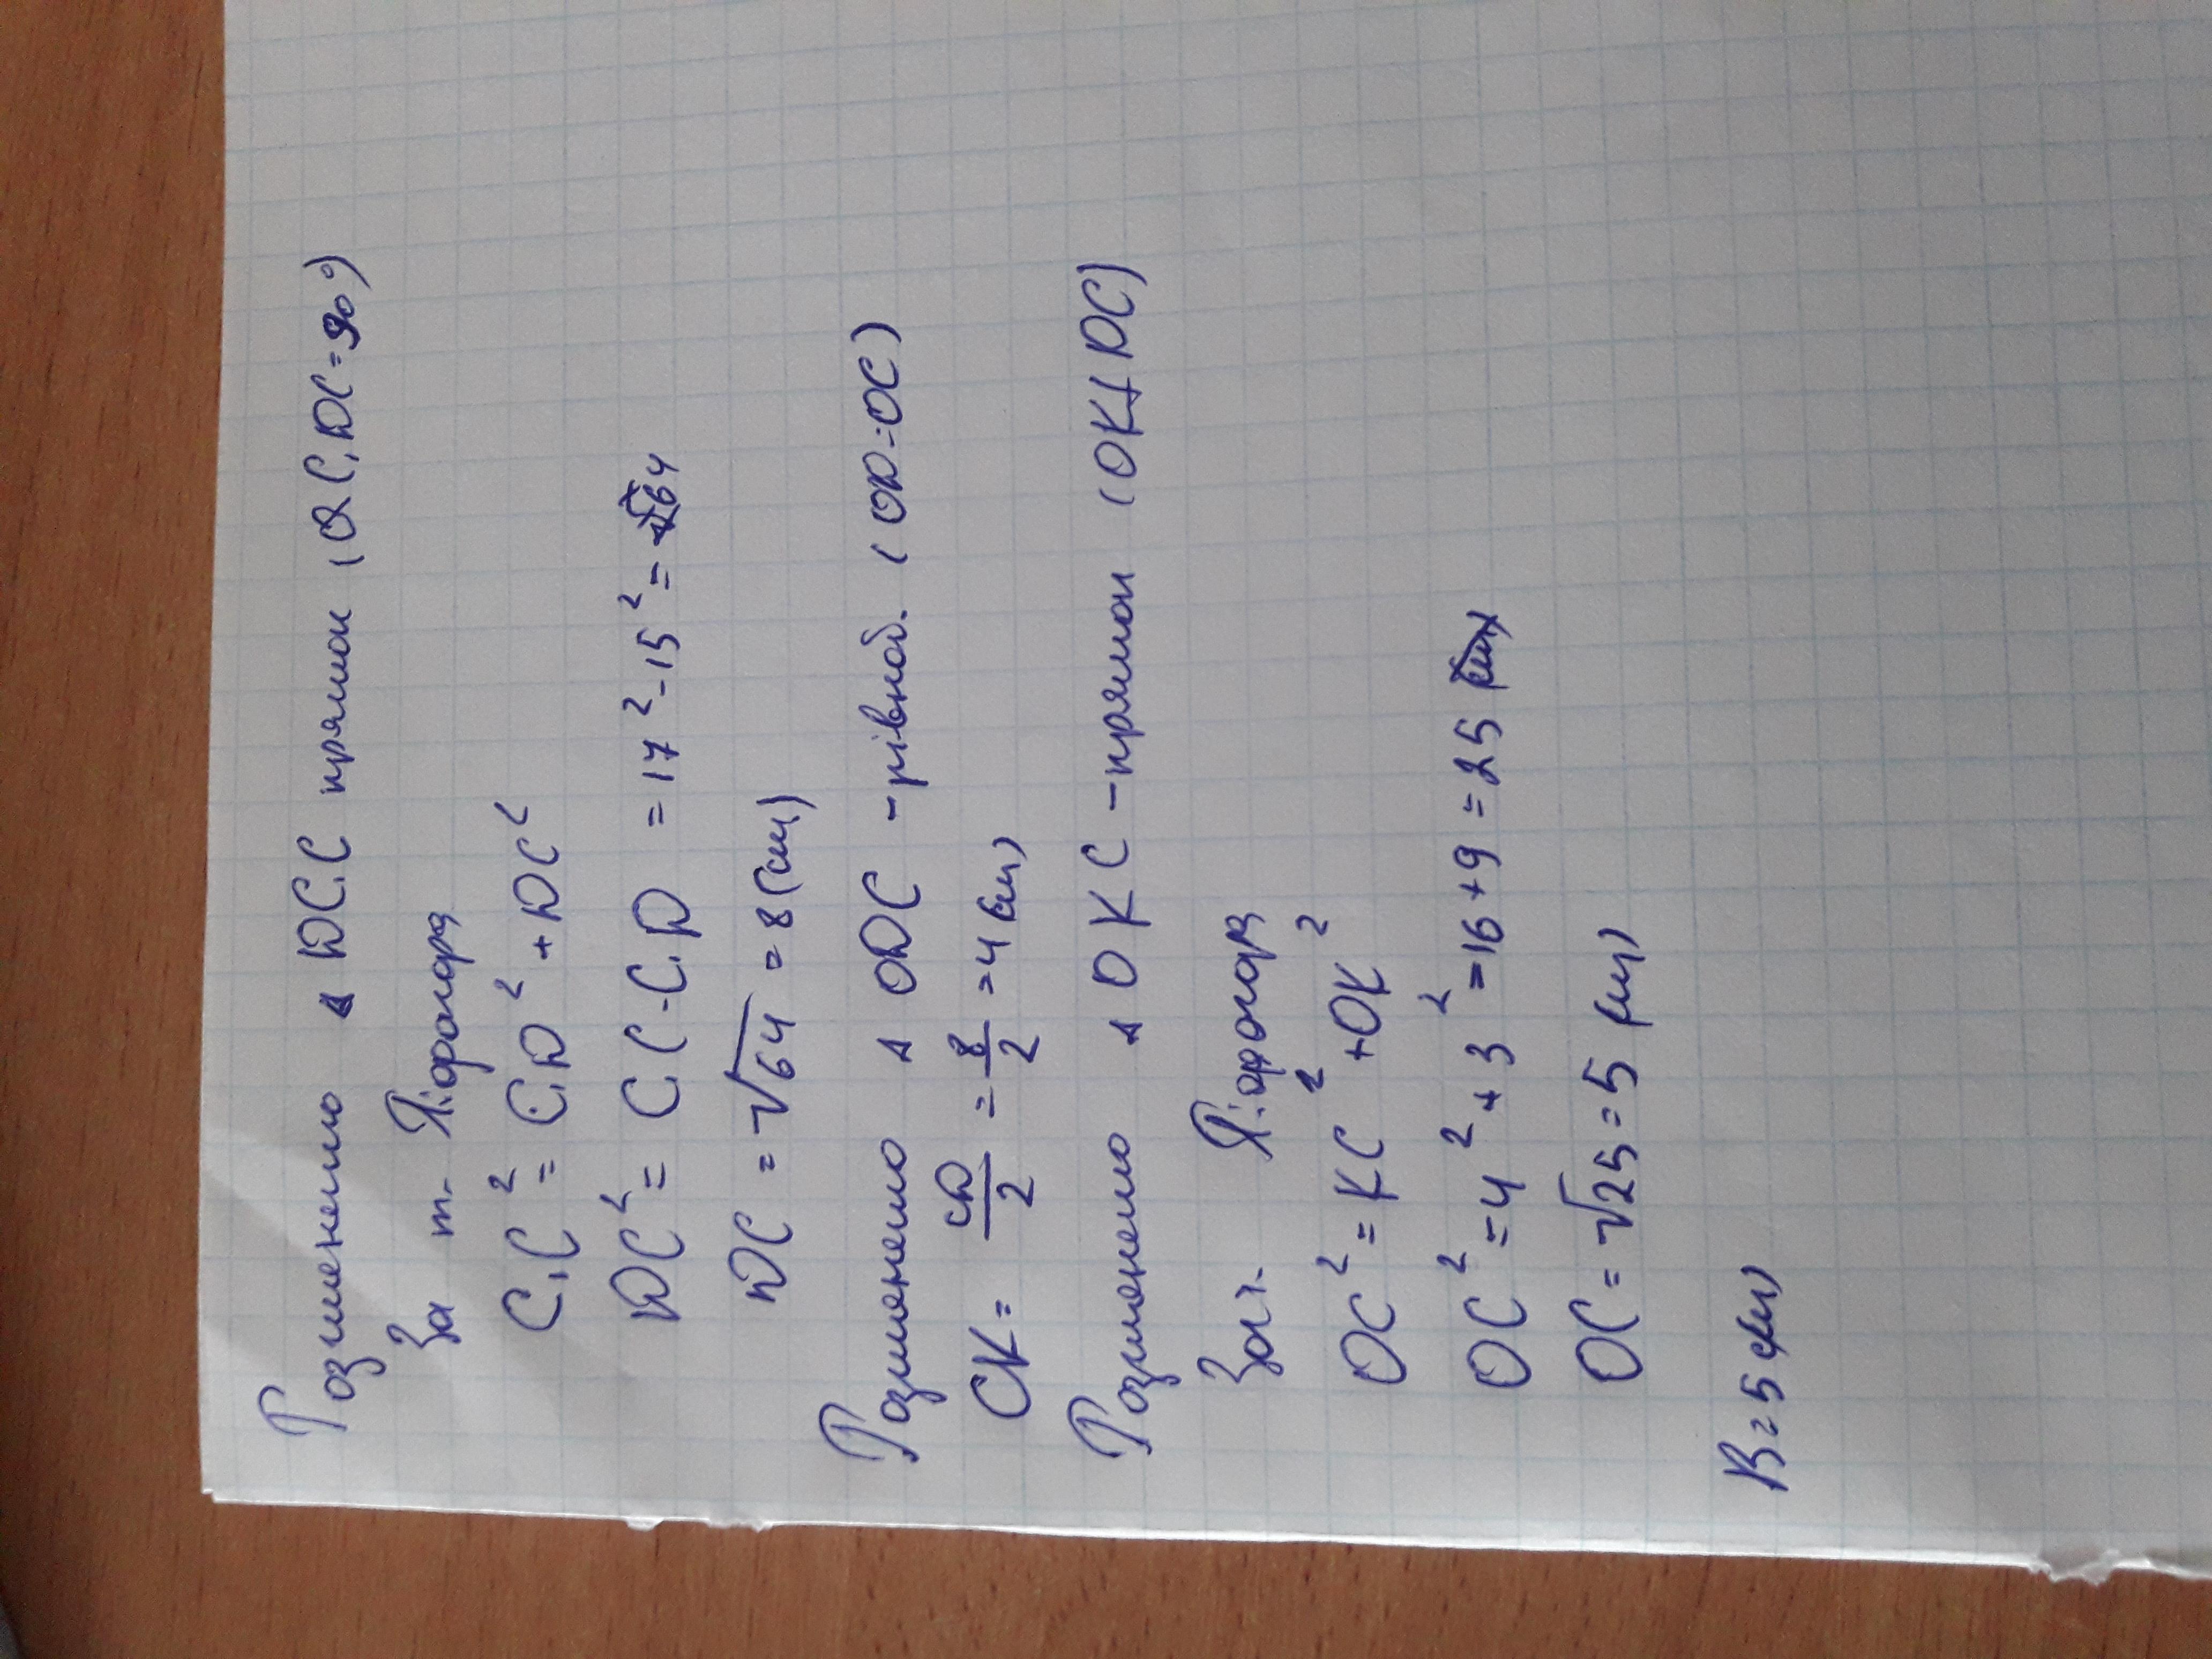 Розглянемо △ DC₁C прямок (∠C₁DC=90°)
За т. Піфагора
C₁C² = C₁D² + DC²
DC² = C₁C - C₁D = 17² - 15² = 64
DC = √64 = 8 (см)
Розглянемо △ ODC - рівноб. (OD=OC)
CK = CD/2 = 8/2 = 4 (см)
Розглянемо △ OKC - прямок (OK⊥DC)
За т. Піфагора
OC² = KC² + OK²
OC² = 4² + 3² = 16 + 9 = 25
OC = √25 = 5 (см)
В = 5 (см)